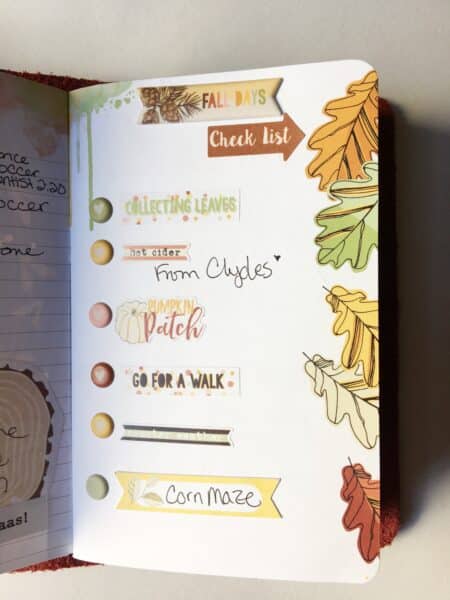 ence
occer
entist 2:20
occer
one
FALL DAYS
Check List
COLLECTING LEAVES
Hot cider
From Clydes
PUMPKIN
Patch
GO FOR A WALK
Corn Maze
aas!